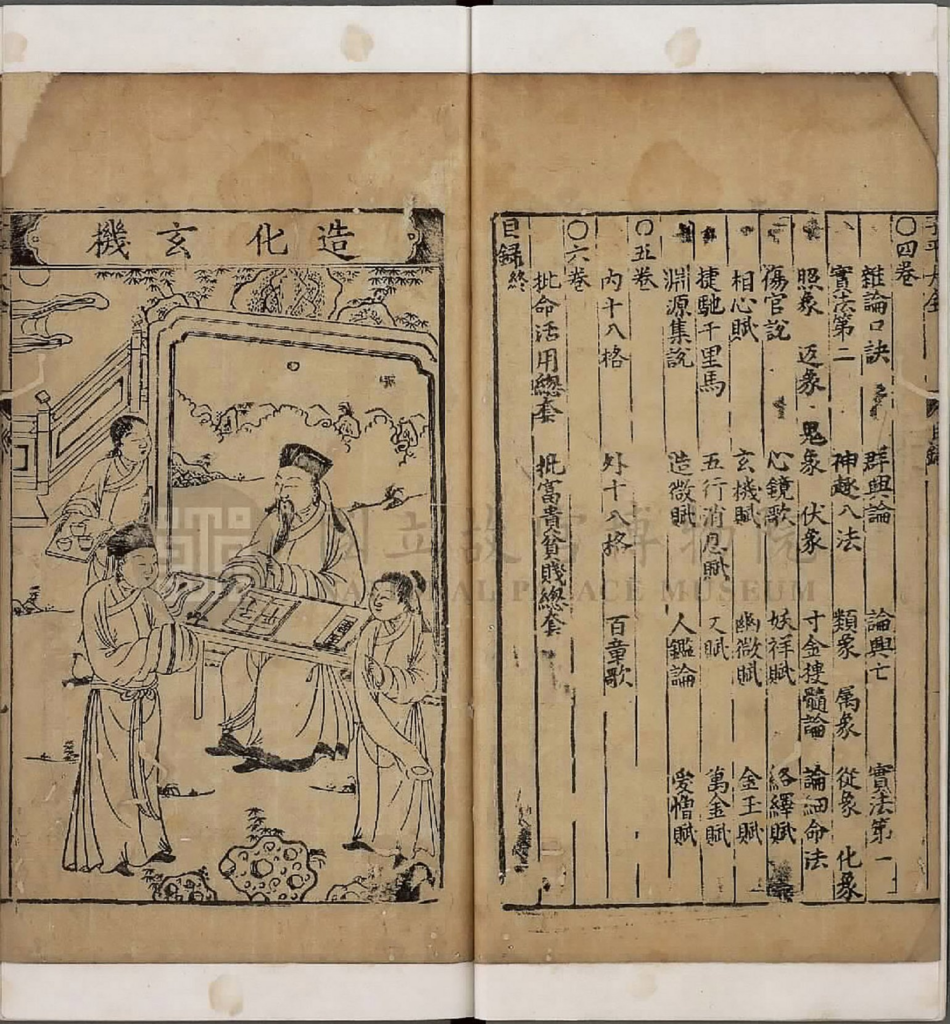 ○四卷
雜論口訣 群興論 論興亡 實法第一
實法第二 神趣八法 類象 属象 從象 化象
照象 返象 鬼象 伏象 寸金搜髓論 論細命法
傷官說 心鏡歌 妖祥賦 絡繹賦
相心賦 玄機賦 幽微賦 金玉賦
捷馳千里馬 五行消息賦 又賦 萬金賦
淵源集說 造微賦 人鑑論 愛憎賦
○五卷
内十八格 外十八格 百章歌
○六卷
批命活用總套 批富貴貧賤總套
目録終
造化玄機
國立故宮博物院
NATIONAL PALACE MUSEUM